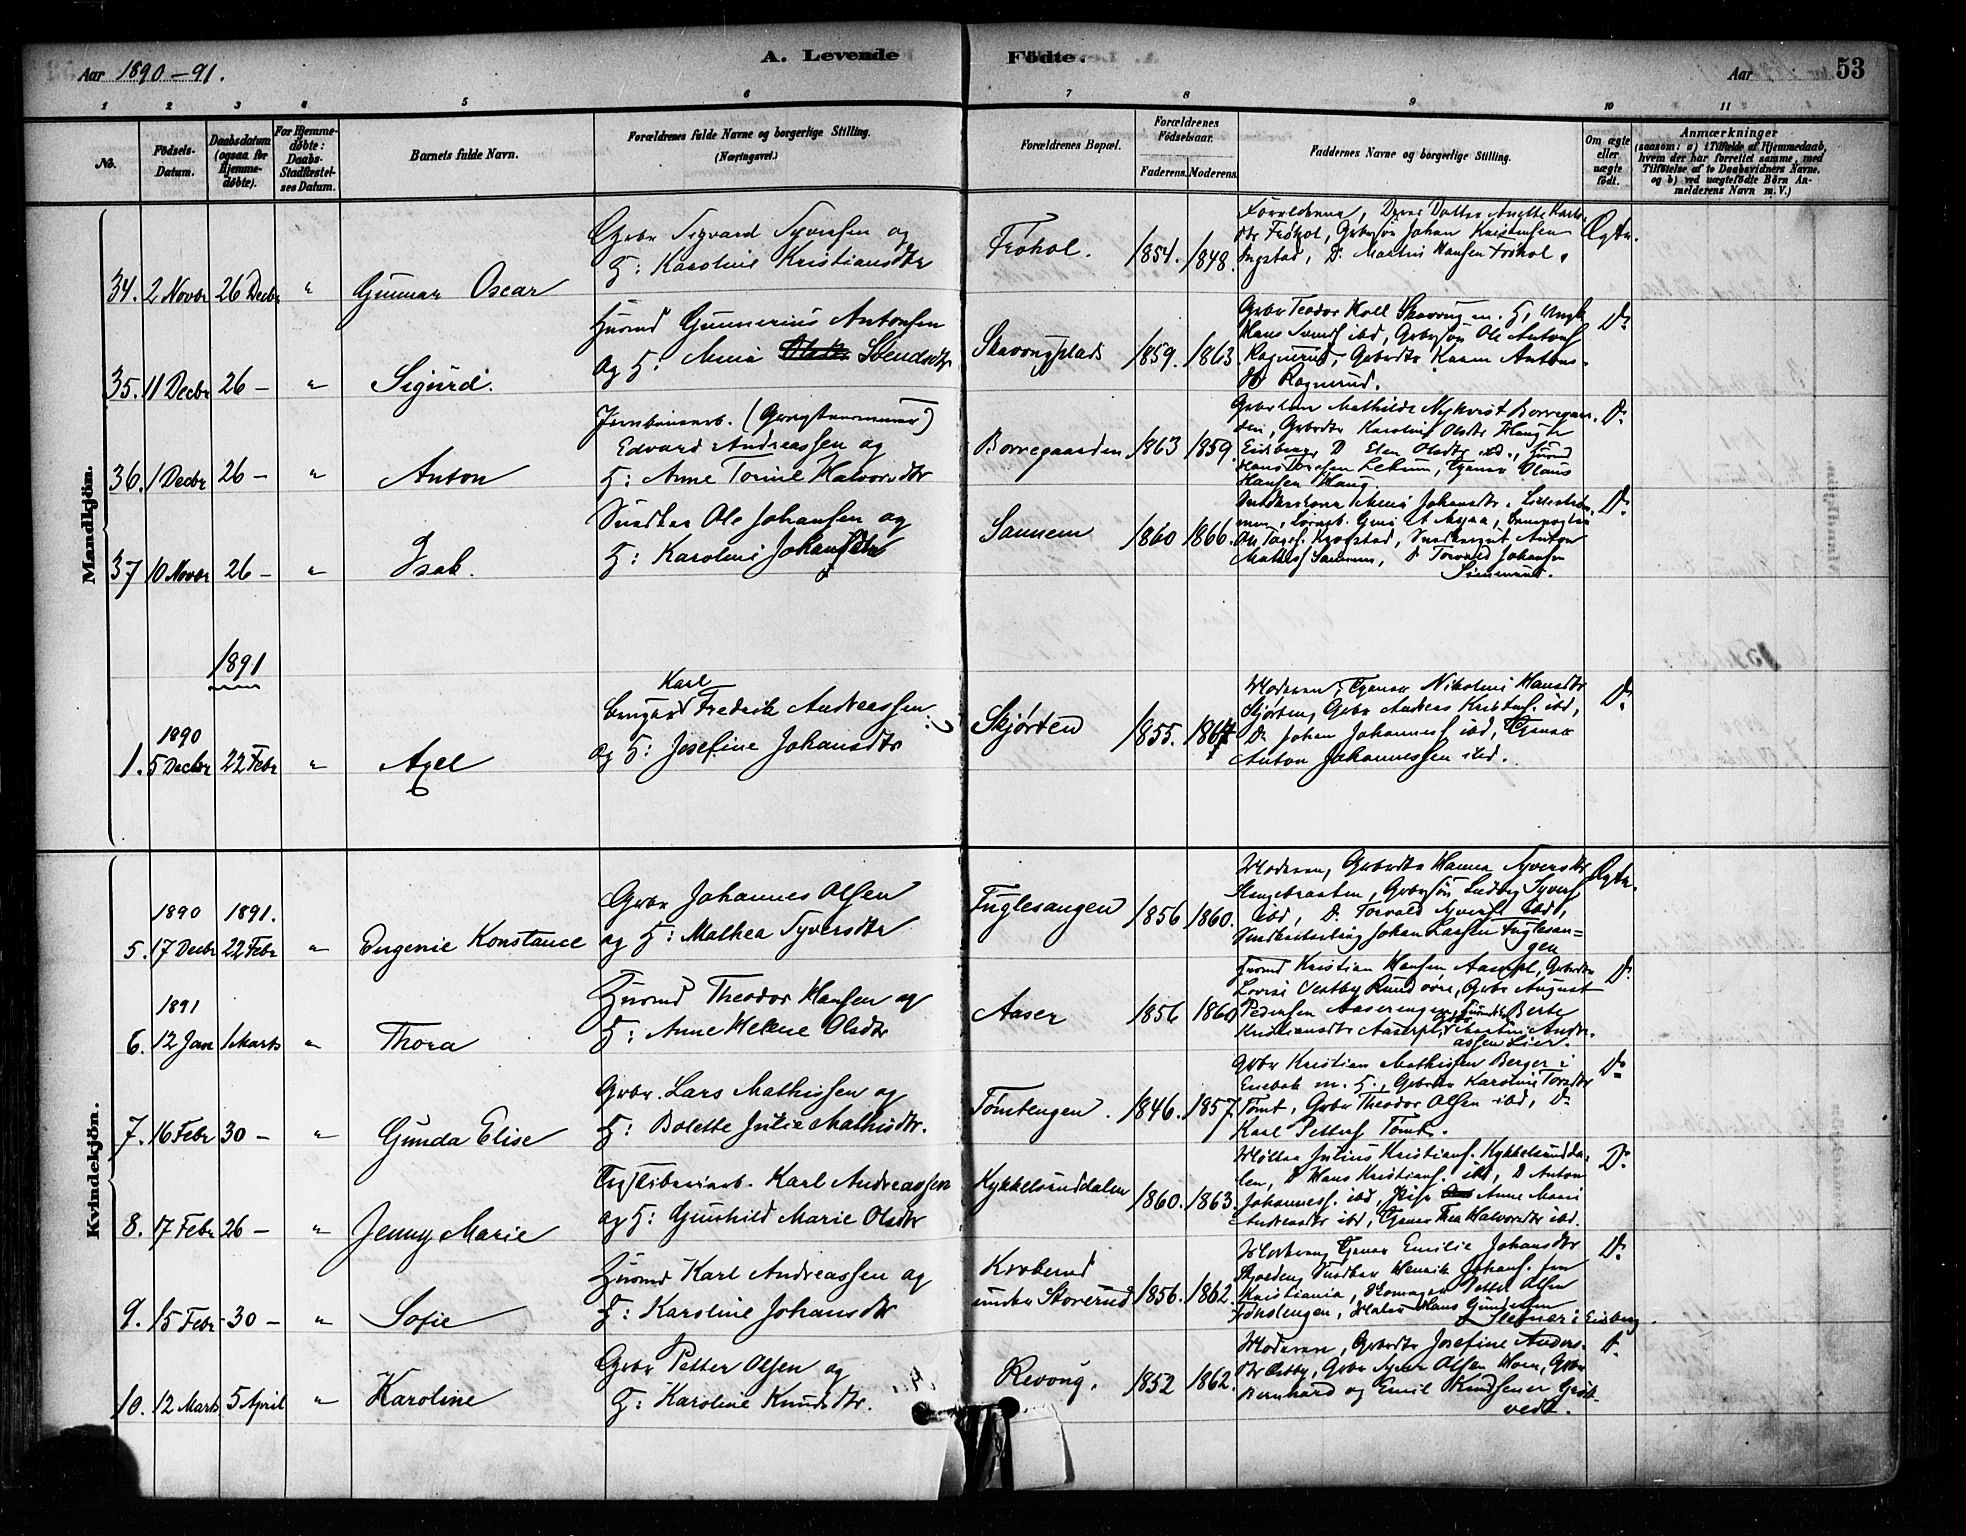 Aar 1890-91.
A. Levende
Födte.
Aar
53
1 2 3 4 5 6 7 8 9 10 11
No.
Födsels-Datum.
Daabsdatum (ogsaa for Hjemme-døbte).
For Hjemme-døbte: Daabs-Stadfæstelses Datum.
Barnets fulde Navn.
Forældrenes fulde Navne og borgerlige Stilling.
(Næringsvei.)
Forældrenes Bopæl.
Forældrenes Födselsaar.
Faderens. Moderens.
Faddernes Navne og borgerlige Stilling.
Om ægte eller uægte født.
Anmærkninger
(saasom: a) i Tilfælde af Hjemmedaab,
hvem der har forrettet samme, med
Tilføielse af to Daabsvidners Navne,
og b) ved uægtefødte Börn An-
melderens Navn m. V.)
Mandkjön.
34. 2 Novbr 26 Decbr " Gunnar Oscar
Gbr Sigvard Syversen og
H: Karoline Kristiansdtr
Frøhol. 1854. 1848.
Forældrene,
dtr Frøhol, Gbrsøn Johan Kristensen
Ingstad, Do Martin Hansen Frøhol.
Ægte.
35. 11 Decbr 26 - " Sigurd.
Husmd Gunnerius Antonsen
og H: Anna Svendsdtr
Skavongplads 1859. 1863.
Hans Svends ibd, Gbrsøn Ole Antons
Ragnerud, Gbrdtr Karen Antons-
dtr Ragnerud.
Do
36. 1 Decbr 26 - " Anton
Edvard Andreassen og
H: Anne Torine Halvorsdtr
Borregaarden 1863 1859.
Mathilde Nykvist Borregaar-
den, Gbrdtr Karoline Olsdtr Haug i
Eidsberg, D Elen Olsdtr ibd., Husmd
Hans Torersen Lekum, Tjener Olaus
Hansen Haug.
Do
37 10 Novbr 26 - " Isak.
Snedker Ole Johansen og
H: Karoline Johansdtr
Sannem 1860 1866.
Snedkerkone Mina Johansdtr
Mathis Sannem, D Torvald Johansen
Do
1891
1890
1. 5 Decbr 22 Febr " Axel
Karl
Fredrik Andreassen
og H: Josefine Johansdtr
Skjørten 1855. 1867
Moderen, Tjener Nikoline Hansdtr
Skjørten, Gbr Andreas Kristens. ibd,
Do Johan Johannes. ibd, Tjener
Anton Johannessen ibd.
Do
Kvindekjön.
1890 1891.
5. 17 Decbr 22 Febr " Eugenie Konstance
Gbr Johannes Olsen
og H: Mathea Syversdtr
Fuglesangen 1856 1860.
Moderen, Gbrdtr Hanna Syversdtr
Hengebraaten, Gbrsøn Ludvig Syvers.
ibd, D. Torvald Syvers. ibd,
Snedkerlærling Johan Larsen Fuglesan-
gen
Ægte.
1891
6. 12 Jan 1 Marts " Thora
Husmd Theodor Hansen og
H: Anne Helene Olsdtr
Aaser 1856 1860
Husmd Kristian Hansen Aaserpl, Gbrdtr
Lovise Vestby Rundøre, Gbr August
Pedersen Aaserengen, Berte
Kristiansdtr Aaserpl, Martin Andre-
assen Lier.
Do
7. 16 Febr 30 - " Gunda Elise
Gbr. Lars Mathissen og
H: Bolette Julie Mathisdtr.
Tømtengen. 1846. 1857.
Gbr Kristian Mathissen Berger i
Enebak m. H., Gbrdtr Karoline Toresdtr
Tømt, Gbr Theodor Olsen ibd, Do
Karl Petters Tømt.
Do
8. 17 Febr 26 - " Jenny Marie
Træsliberiarb. Karl Andreassen
og H: Gunhild Marie Olsdtr
Kykkelsruddalen 1860. 1863.
Møller Julius Kristians. Kykkelsrudda-
len, D Hans Kristians. ibd, D Anton
Johannes. ibd, Anne Marie
Andreasdtr ibd, Tjener Thea Halvorsdtr ibd.
Do
9. 15 Febr 30 - " Sofie
Husmd Karl Andreassen og
H: Karoline Johansdtr
under Storerud 1856. 1862.
Moderen, Tjener Emilie Johansdtr
Snedker Henrik Johans. fra
Kristiania, Skomager Petter Olsen
Maler Hans Gundersen
Slefner i Eidsberg.
Do
10. 12 Marts 5 April " Karoline
Gbr Petter Olsen og
H: Karoline Knudsdtr.
Revoug. 1852 1862.
Moderen, Gbrdtr Josefine Anders-
dtr Østby, Gbr Syver Olsen Hoen, Gbr
Bernhard og Emil Knudsener Grøt-
vedt.
D.